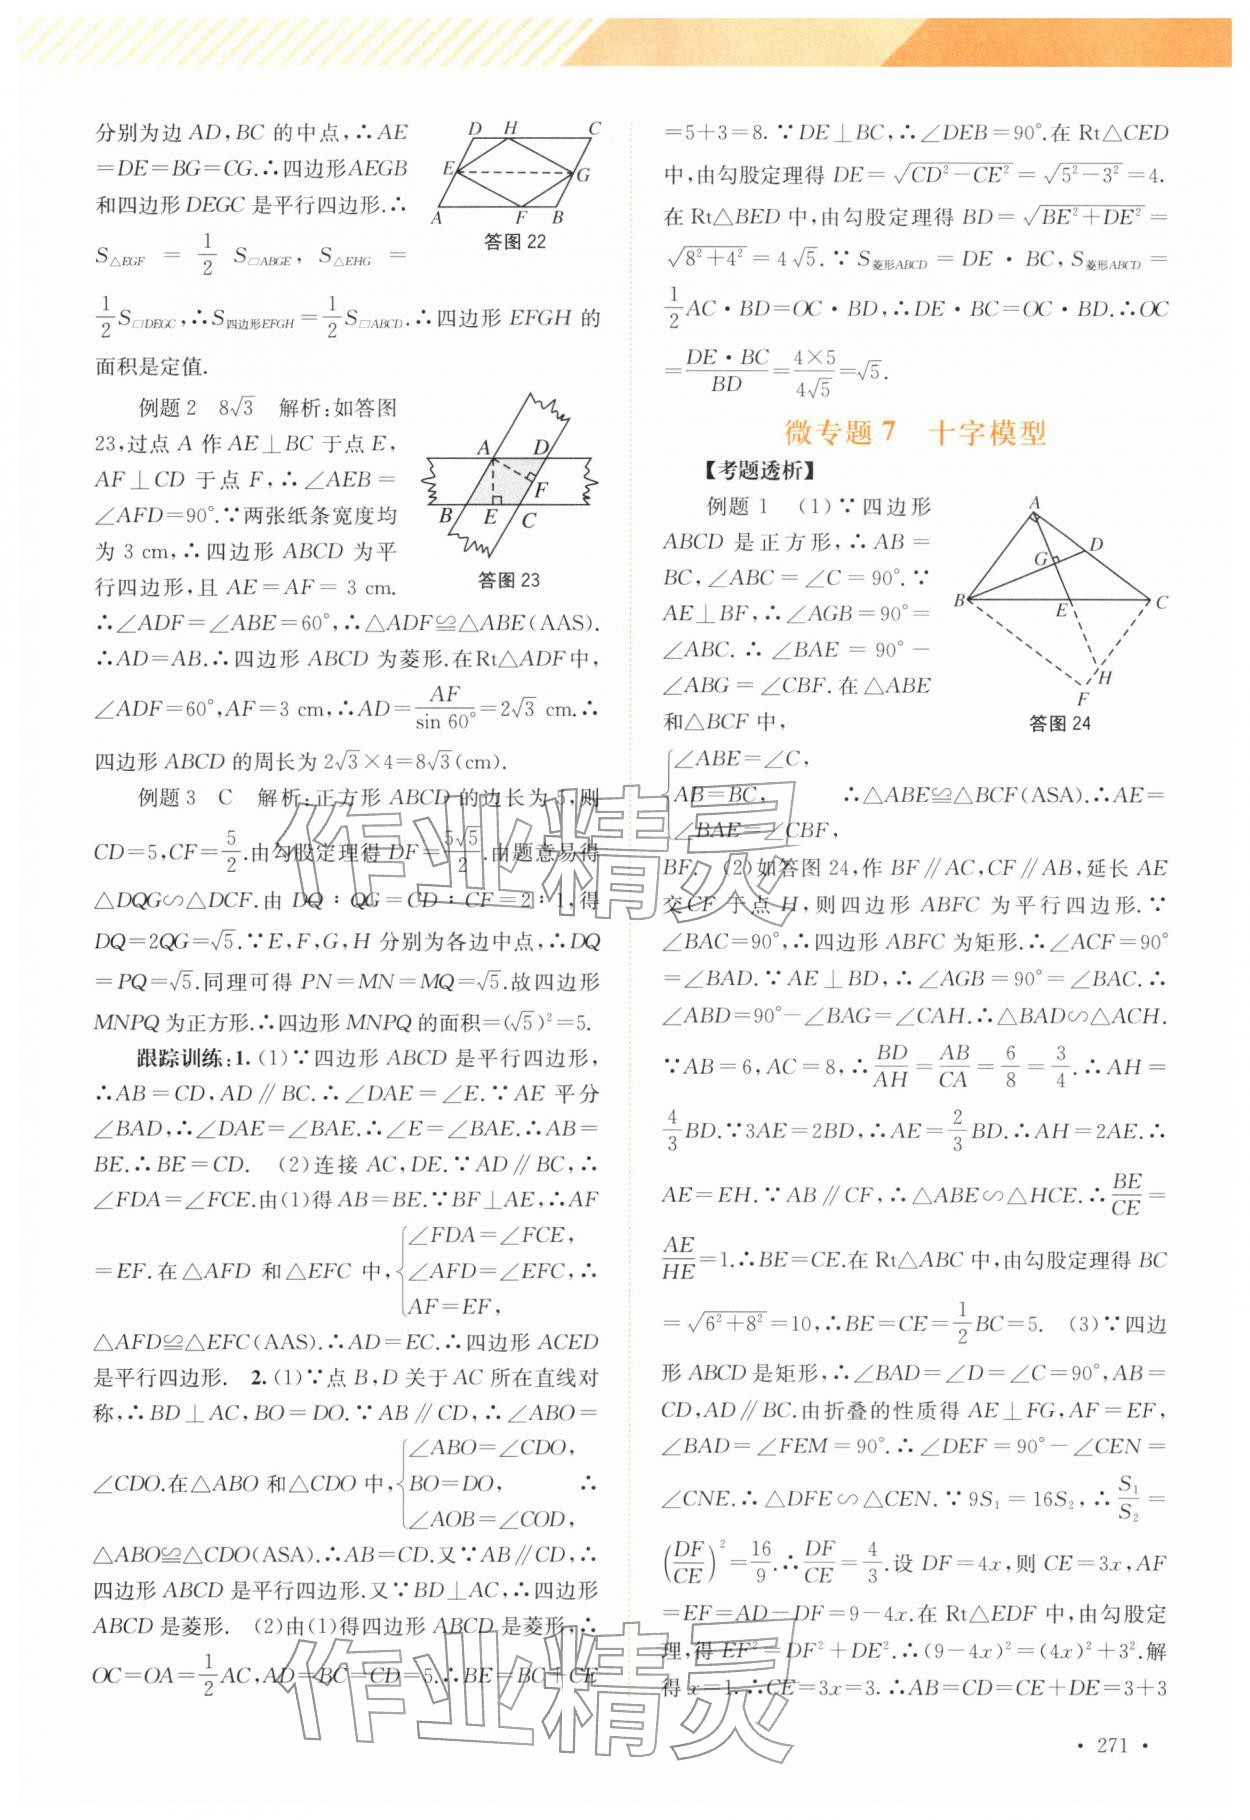 分别为边 AD,BC 的中点,∴AE
=DE=BG=CG.∴四边形AEGB
和四边形 DEGC 是平行四边形.∴
S△EGF = 1/2 S□ABGE, S△EHG =
1/2 S□DEGC,∴S四边形EFGH=1/2 S□ABCD.∴四边形 EFGH 的
面积是定值.
D H C
E G
A F B
答图 22
例题 2 8√3 解析:如答图
23,过点 A 作 AE⊥BC 于点 E,
AF⊥CD 于点 F,∴∠AEB=
∠AFD=90°.∵两张纸条宽度均
为 3 cm,∴四边形 ABCD 为平
行四边形,且 AE=AF=3 cm.
A D
F
B E C
答图 23
∴∠ADF=∠ABE=60°,∴△ADF≌△ABE(AAS).
∴AD=AB.∴四边形 ABCD 为菱形.在Rt△ADF中,
∠ADF=60°,AF=3 cm,∴AD=AF/sin 60°=2√3 cm.∴
四边形 ABCD 的周长为 2√3×4=8√3(cm).
例题 3 C 解析:正方形 ABCD 的边长为 5,则
CD=5,CF=5/2.由勾股定理得 DF=5√5/2.由题意易得
△DQG∽△DCF.由 DQ∶QG=CD∶CF=2∶1,得
DQ=2QG=√5.∵E,F,G,H 分别为各边中点,∴DQ
=PQ=√5.同理可得 PN=MN=MQ=√5.故四边形
MNPQ 为正方形.∴四边形 MNPQ 的面积=(√5)²=5.
跟踪训练:1.(1)∵四边形 ABCD 是平行四边形,
∴AB=CD,AD∥BC.∴∠DAE=∠E.∵AE 平分
∠BAD,∴∠DAE=∠BAE.∴∠E=∠BAE.∴AB=
BE.∴BE=CD. (2)连接 AC,DE.∵AD∥BC,∴
∠FDA=∠FCE.由(1)得 AB=BE.∵BF⊥AE,∴AF
∠FDA=∠FCE,
=EF.在△AFD 和△EFC 中,{∠AFD=∠EFC,∴
AF=EF,
△AFD≌△EFC(AAS).∴AD=EC.∴四边形 ACED
是平行四边形. 2.(1)∵点 B,D 关于 AC 所在直线对
称,∴BD⊥AC,BO=DO.∵AB∥CD,∴∠ABO=
∠ABO=∠CDO,
∠CDO.在△ABO 和△CDO 中,{BO=DO, ∴
∠AOB=∠COD,
△ABO≌△CDO(ASA).∴AB=CD.又∵AB∥CD,∴
四边形 ABCD 是平行四边形.又∵BD⊥AC,∴四边形
ABCD 是菱形. (2)由(1)得四边形 ABCD 是菱形,∴
OC=OA=1/2 AC,AD=BC=CD=5.∴BE=BC+CE
=5+3=8.∵DE⊥BC,∴∠DEB=90°.在 Rt△CED
中,由勾股定理得 DE=√(CD²−CE²)=√(5²−3²)=4.
在 Rt△BED 中,由勾股定理得 BD=√(BE²+DE²)=
√(8²+4²)=4√5.∵S菱形ABCD=DE·BC,S菱形ABCD=
1/2 AC·BD=OC·BD,∴DE·BC=OC·BD.∴OC
=DE·BC/BD=4×5/4√5=√5.
微专题 7 十字模型
【考题透析】
例题 1 (1)∵四边形
ABCD 是正方形,∴AB=
BC,∠ABC=∠C=90°.∵
AE⊥BF,∴∠AGB=90°=
∠ABC.∴∠BAE=90°−
∠ABG=∠CBF.在△ABE
和△BCF 中,
A
D
G
B E C
H
F
答图 24
∠ABE=∠C,
{AB=BC, ∴△ABE≌△BCF(ASA).∴AE=
∠BAE=∠CBF,
BF. (2)如答图 24,作 BF∥AC,CF∥AB,延长 AE
交CF 于点 H,则四边形 ABFC 为平行四边形.∵
∠BAC=90°,∴四边形 ABFC 为矩形.∴∠ACF=90°
=∠BAD.∵AE⊥BD,∴∠AGB=90°=∠BAC.∴
∠ABD=90°−∠BAG=∠CAH.∴△BAD∽△ACH.
∵AB=6,AC=8,∴BD/AH=AB/CA=6/8=3/4.∴AH=
4/3 BD.∵3AE=2BD,∴AE=2/3 BD.∴AH=2AE.∴
AE=EH.∵AB∥CF,∴△ABE∽△HCE.∴BE/CE=
AE/HE=1.∴BE=CE.在 Rt△ABC 中,由勾股定理得 BC
=√(6²+8²)=10,∴BE=CE=1/2 BC=5. (3)∵四边
形 ABCD 是矩形,∴∠BAD=∠D=∠C=90°,AB=
CD,AD∥BC.由折叠的性质得 AE⊥FG,AF=EF,
∠BAD=∠FEM=90°.∴∠DEF=90°−∠CEN=
∠CNE.∴△DFE∽△CEN.∵9S₁=16S₂,∴S₁/S₂=
(DF/CE)²=16/9.∴DF/CE=4/3.设 DF=4x,则 CE=3x,AF
=EF=AD−DF=9−4x.在 Rt△EDF 中,由勾股定
理,得 EF²=DF²+DE².∴(9−4x)²=(4x)²+3².解
得 x=1.∴CE=3x=3.∴AB=CD=CE+DE=3+3
· 271 ·
作业精灵
作业精灵